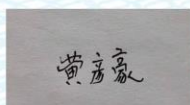 黄彦豪